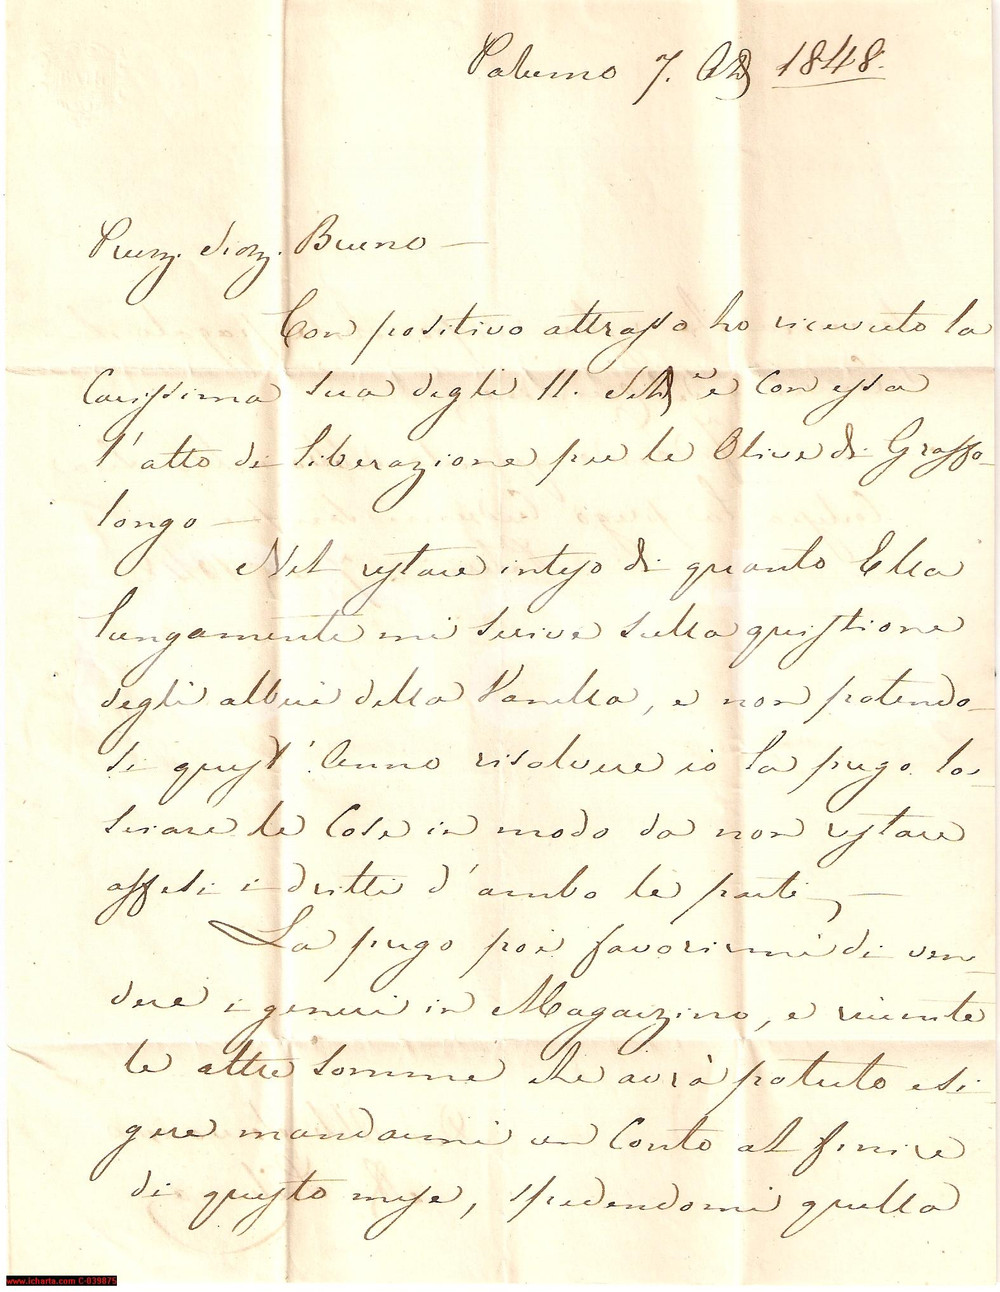 Palermo 7. 1848.
Bruno —
Con positivo attrasso ho ricevuto la
Carissima sua degli 11. e con essa
l'atto di liberazione per le Olive di Grasso-
longo —
Nel restare inteso di quanto Ella
lungamente mi scrive sulla quistione
degli alberi della Vanella, e non potendo-
si quest'Anno risolvere io la prego la-
sciare le Cose in modo da non restare
offesi i dritti d'ambo le parti —
La prego poi favorirmi di ven-
dere i generi in Magazzino, e riunite
le altre somme che avrà potuto esi-
gere mandarmi un Conto al finire
di questo mese, spedendomi quella
www.icharta.com C-039875